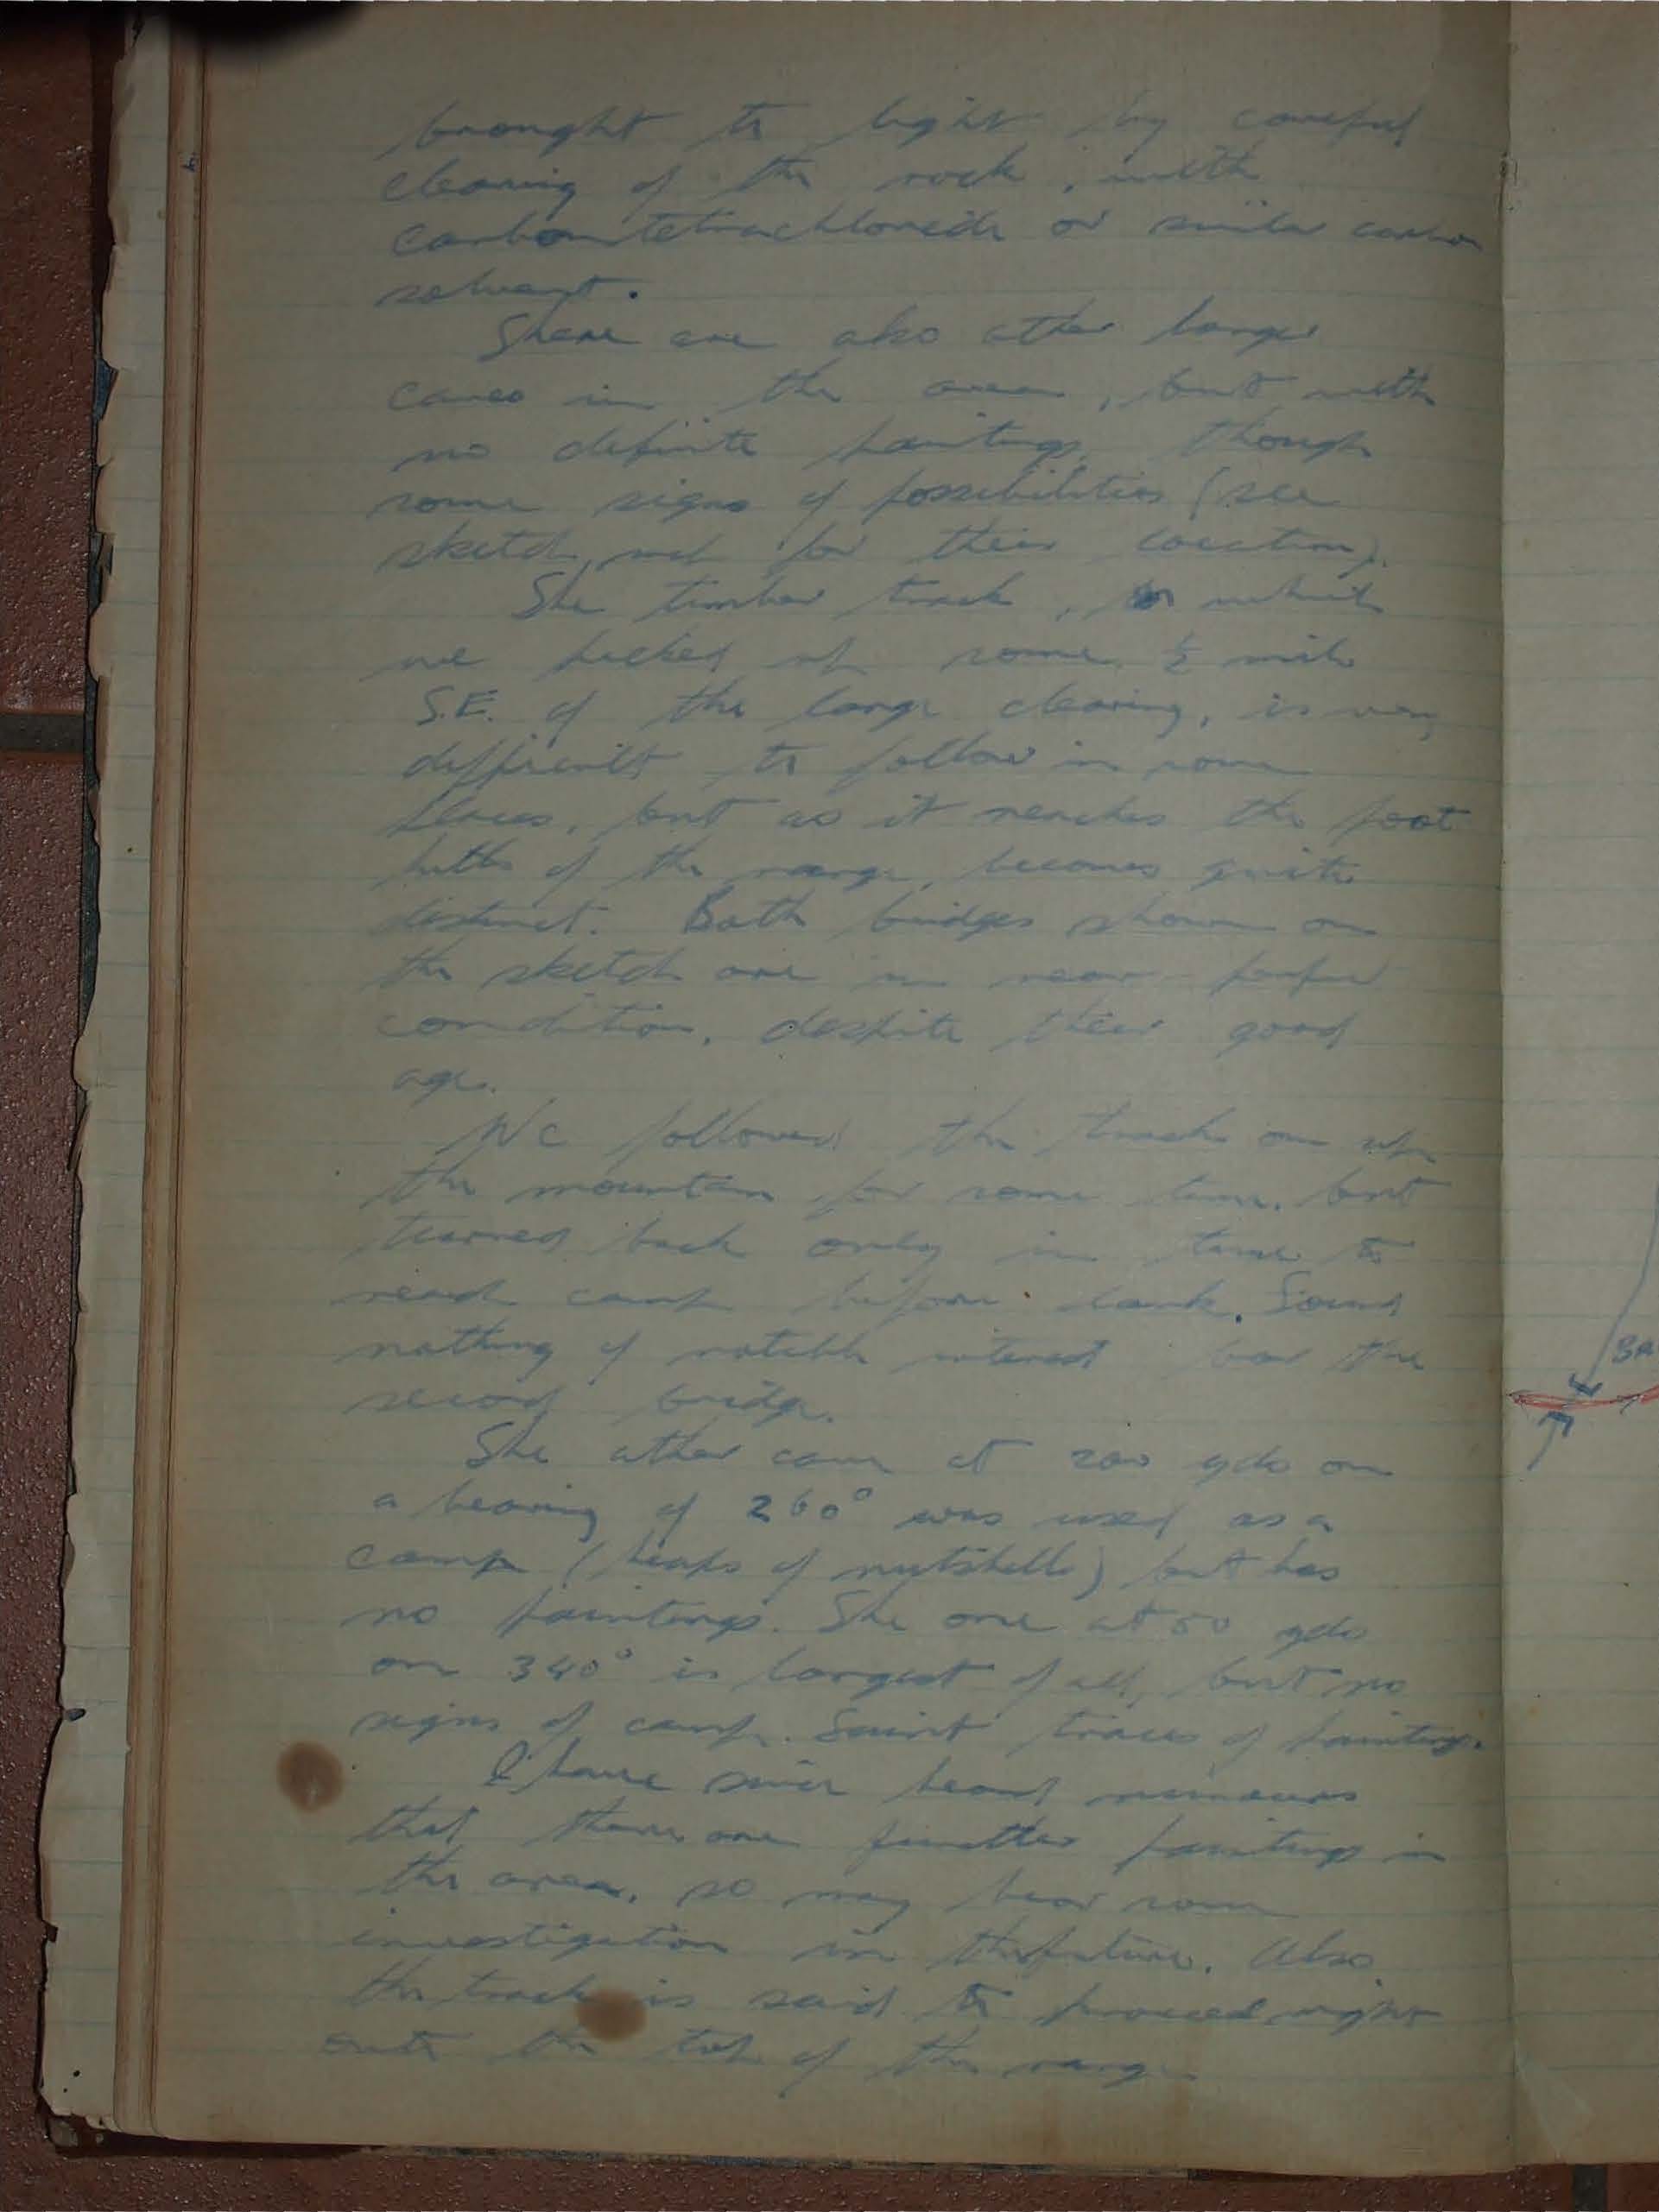 brought to light by careful
cleaning of the rock, with
carbontetrachloride or similar carbon
solvent.
There are also other larger
caves in the area, but with
no definite paintings, though
some signs of possibilities (see
sketch for their location).
The timber track, which
we picked up some ½ mile
S.E. of the large clearing, is very
difficult to follow in some
places, but as it reaches the foot
hills of the range, becomes quite
distinct. Both bridges shown on
the sketch are in near-perfect
condition, despite their good
age.
We followed the track on up
the mountain for some time, but
turned back only in time to
reach camp before dark. Found
nothing of notable interest bar the
second bridge.
The other cave at 200 yds on
a bearing of 260° was used as a
camp (heaps of nutshells) but has
no paintings. The one at 50 yds
on 340° is largest of all, but no
signs of camp. Faint traces of paintings.
I have since heard rumours
that there are further paintings in
the area, so may bear some
investigation in the future. Also
the track is said to proceed right
onto the top of the range